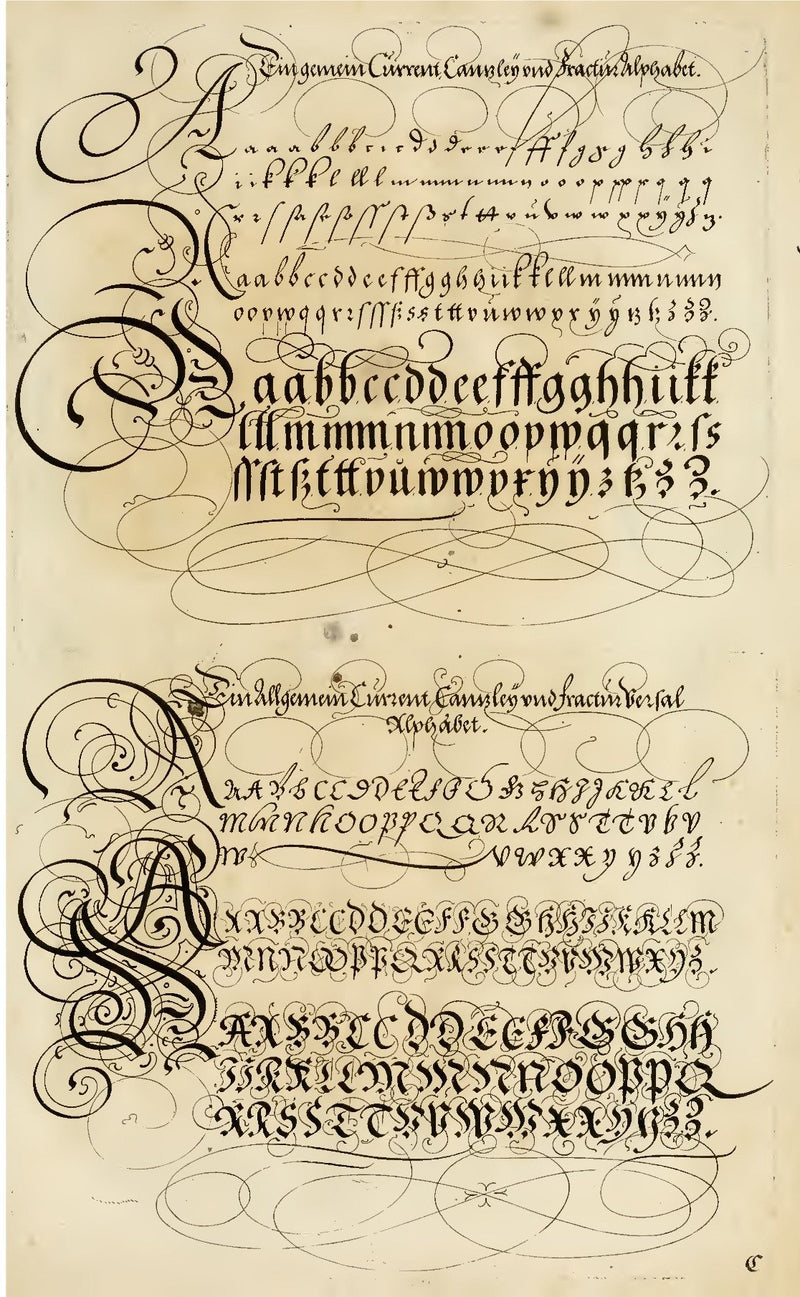 Ein gemein Current Cantzley vnd Fractur Alphabet.
A a a a a b b b b c c c d d d e e e e f ff ff g g g g h h h h i
i i k k k k l ll ll m m m n n n n o o o o p p p p q q q
r r ſ ſ s t v ů v w w x x y ÿ z z.
A a a a b b c c d d e e f ff g g h h i i k k l ll m m m n n n n
o o p p q q r r ſ ſſ s s t tt v ů w w x x ÿ ÿ tz z z z z.
A a a a b b c c d d e e f ff g g h h i i k k
l ll m m m n n n o o p p q q r r ſ s
ſſ ſt ß t tt v ů w w x x y ÿ z tz z z.
Ein Allgemein Current Cantzley vnd fractur Versal
Alphabet.
A A A A B B C C D D E E F G G H H H I I K K L L
M M N N O O P P Q Q R R S S T T V V V
W V W X X Y Y Z Z Z.
A A A B B C C D D E E F F G G H H I I K K L L M
M N N O P P Q R R S S T T V V W W X Y Z.
A A A B B C C D D E E F F G G H H
I I K K L L M M N N O O P P Q
R R S S T T V V W W X X Y Y Z Z.
C